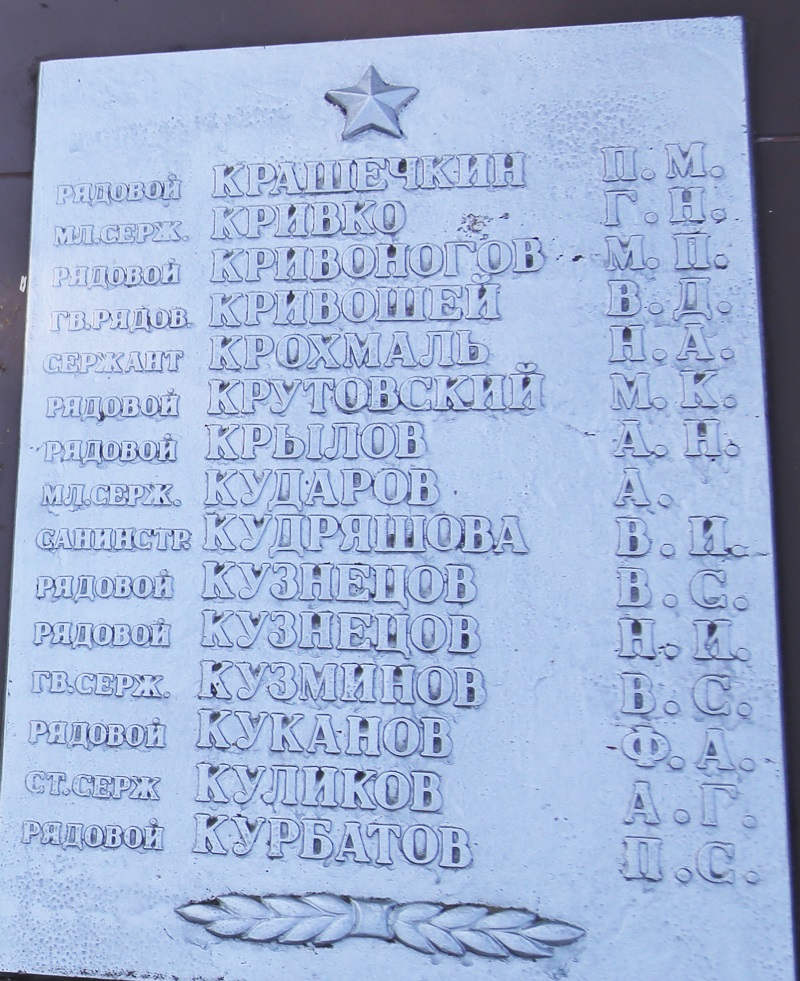 РЯДОВОЙ КРАШЕЧКИН П.М.
МЛ.СЕРЖ. КРИВКО Г.Н.
РЯДОВОЙ КРИВОНОГОВ М.П.
ГВ.РЯДОВ. КРИВОШЕЙ В.Д.
СЕРЖАНТ КРОХМАЛЬ Н.А.
РЯДОВОЙ КРУТОВСКИЙ М.К.
РЯДОВОЙ КРЫЛОВ А.Н.
МЛ.СЕРЖ. КУДАРОВ А.
САНИНСТР. КУДРЯШОВА В.И.
РЯДОВОЙ КУЗНЕЦОВ В.С.
РЯДОВОЙ КУЗНЕЦОВ Н.И.
ГВ.СЕРЖ. КУЗМИНОВ В.С.
РЯДОВОЙ КУКАНОВ Ф.А.
СТ.СЕРЖ КУЛИКОВ А.Г.
РЯДОВОЙ КУРБАТОВ П.С.